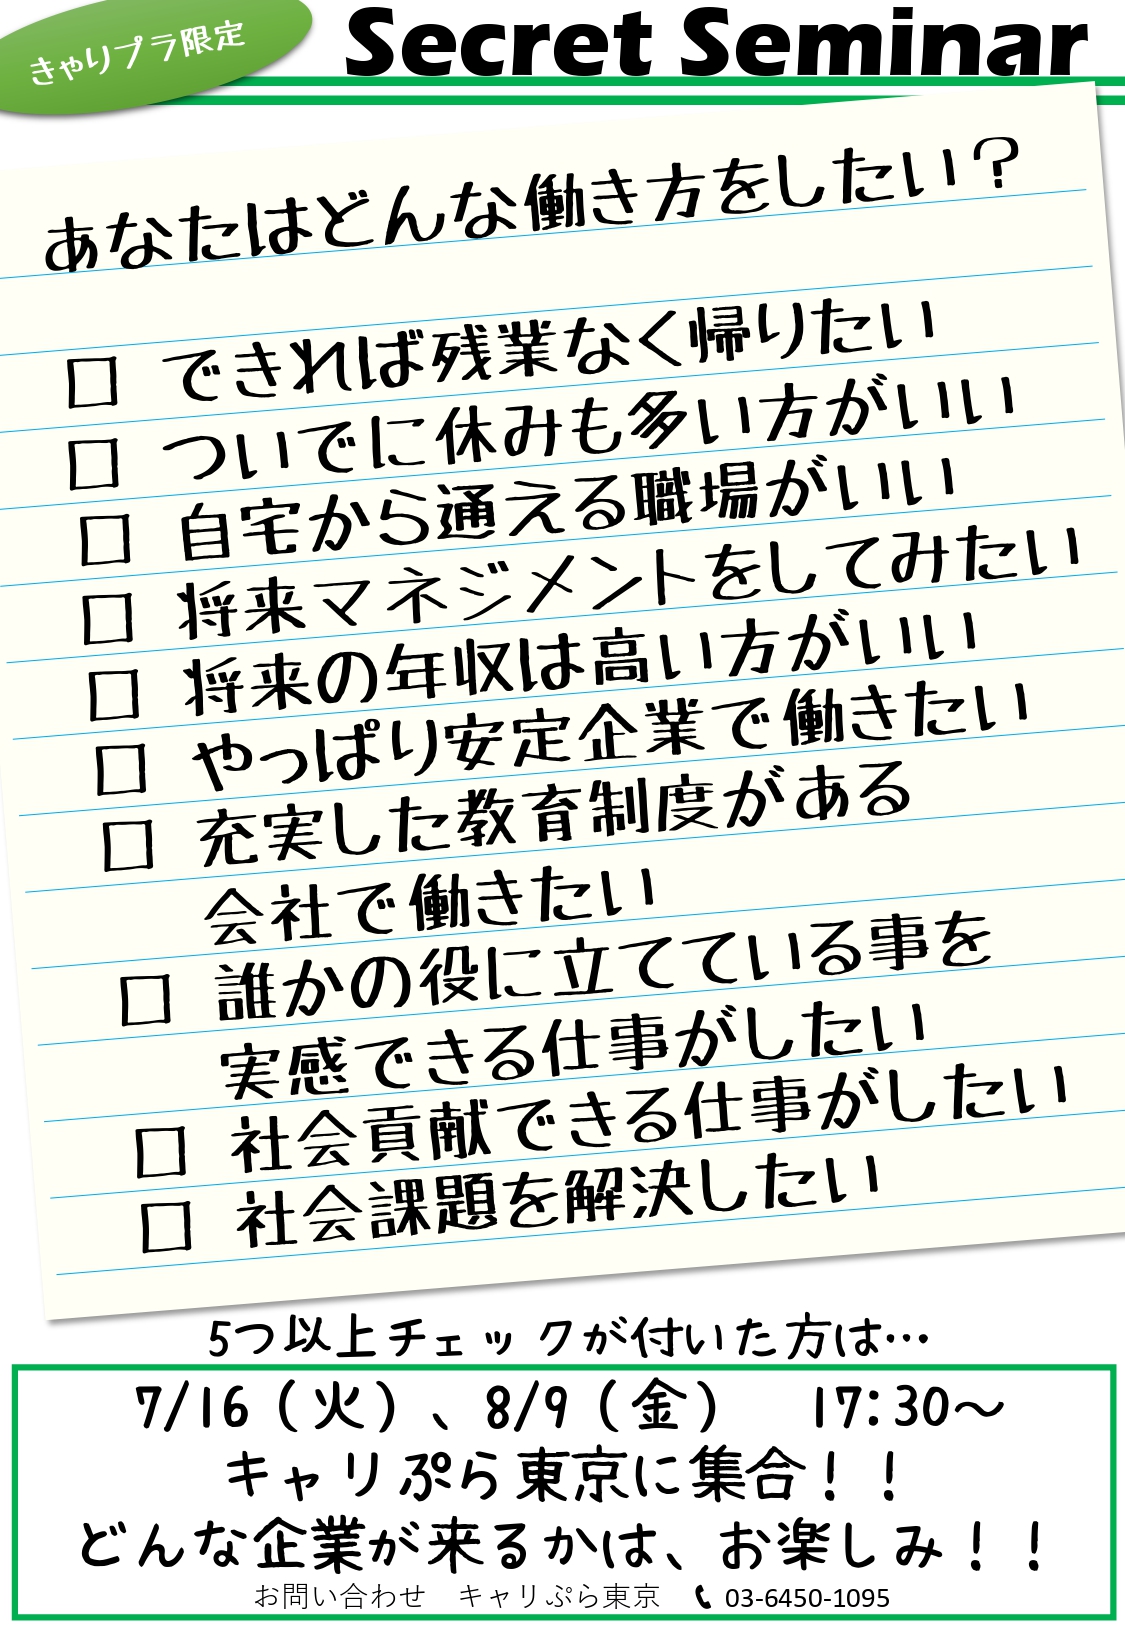 きゃりプラ限定
Secret Seminar
あなたはどんな働き方をしたい？
□ できれば残業なく帰りたい
□ ついでに休みも多い方がいい
□ 自宅から通える職場がいい
□ 将来マネジメントをしてみたい
□ 将来の年収は高い方がいい
□ やっぱり安定企業で働きたい
□ 充実した教育制度がある
会社で働きたい
□ 誰かの役に立てている事を
実感できる仕事がしたい
□ 社会貢献できる仕事がしたい
□ 社会課題を解決したい
5つ以上チェックが付いた方は…
7/16（火）、8/9（金）　17:30～
キャリぷら東京に集合！！
どんな企業が来るかは、お楽しみ！！
お問い合わせ　キャリぷら東京　03-6450-1095